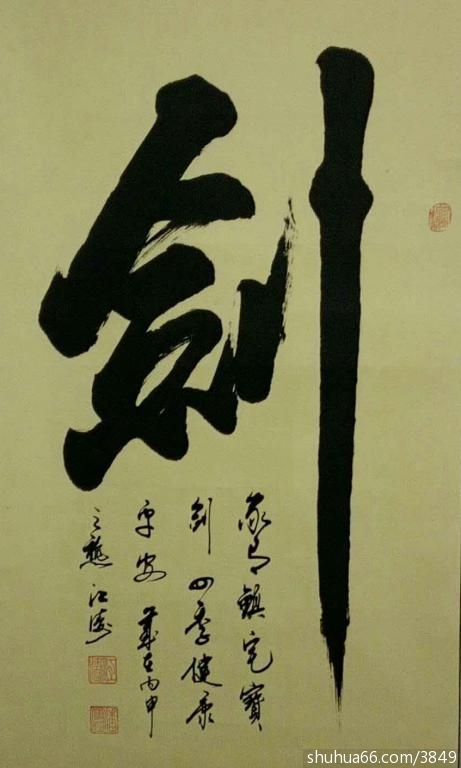 剑
家有镇宅寶
剑四季健康
平安岁在丙申
之秋江涛
shuhua66.com/3849